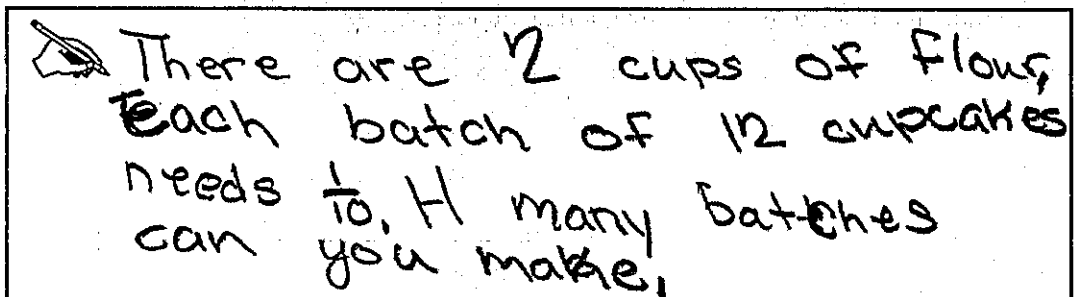 There are 2 cups of flour,
Each batch of 12 cupcakes
needs 1/10. H many batches
can you make.